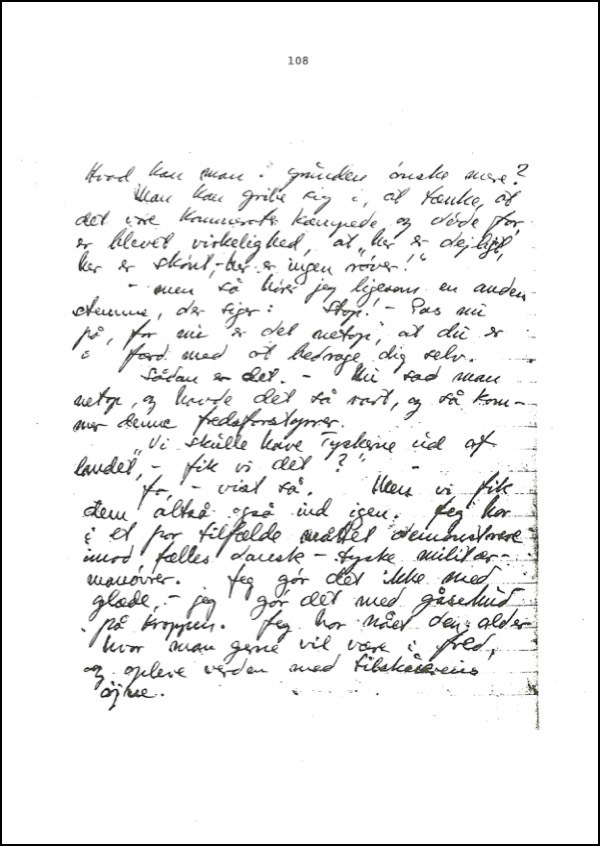 108
Hvad kan man i grunden ønske mere?
Man kan gribe sig i, at tænke, at
det vore kammerater kæmpede og døde for,
er blevet virkelighed, at "her er dejligt,
her er skønt, her er ingen røver!"
- men så hører jeg ligesom en anden
stemme, der siger: Stop! - Pas nu
på, for nu er det netop, at du er
i færd med at bedrage dig selv.
Sådan er det. - Nu sad man
netop, og havde det så rart, og så kom-
mer denne fredsforstyrrer.
"Vi skulle have Tyskerne ud af
landet, - fik vi det?"
Ja, - vist så. Men vi fik
dem altså også ind igen. Jeg har
i et par tilfælde måttet demonstrere
imod fælles dansk - tyske militær-
manøvrer. Jeg gør det ikke med
glæde, - jeg gør det med gåsehud
på kroppen. Jeg har nået den alder
hvor man gerne vil være i fred,
og opleve verden med tilskuerens
øjne.